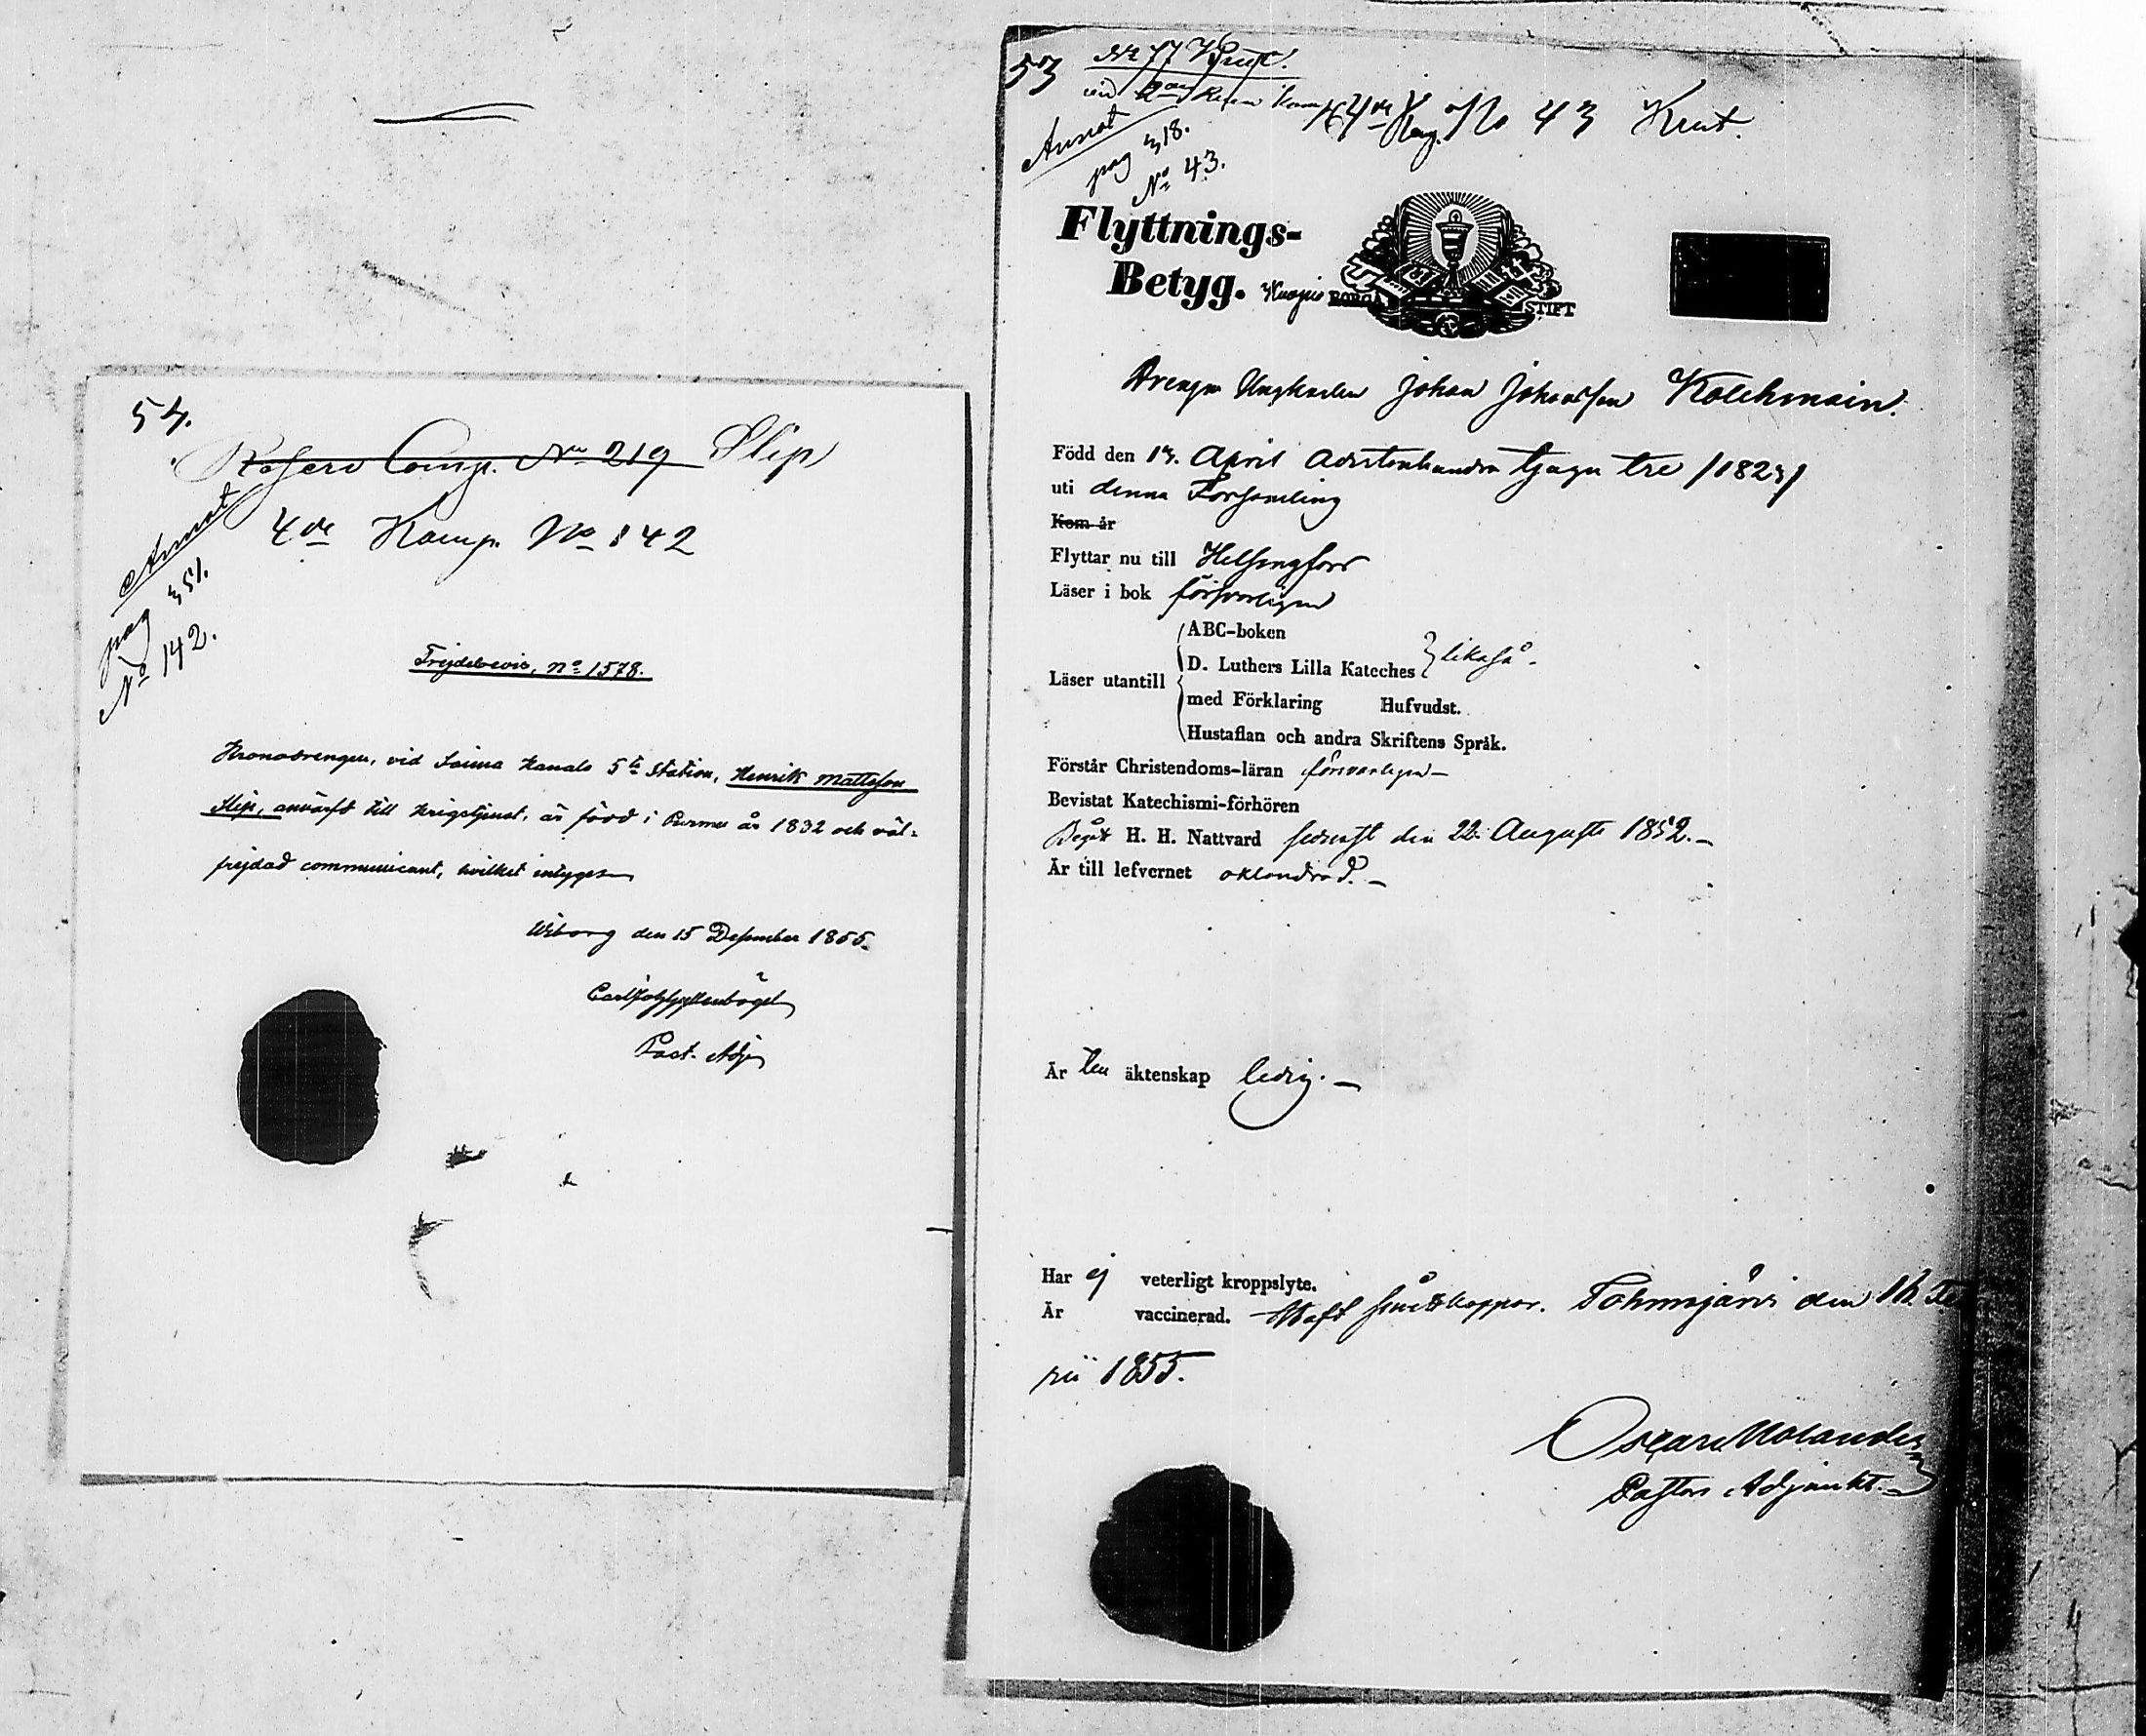 54.
Reserv Comp. No 219 Slip
4de Komp. No 142
Annot
pag 351.
No 142.
Frejdebevis, No 1578.
Kronodrengen, vid Saima Kanals 5te Station, Henrik Mattsson
Slip, anvärft till krigstjenst, är född i Purmo år 1832 och väl-
frejdad communicant, hvilket intygas
Wiborg den 15 December 1855.
Past. Adj.
53
No 77 Knut.
vid
4de Komp. No 43 Knut.
Annot
pag 318.
No 43.
Flyttnings-
Betyg. Kuopio BORGÅ STIFT
Drengen Ungkarlen Johan Johansson Kolehmain.
Född den 13. April Adertonhundra tjugu tre /1823/
uti denna Församling
Kom år
Flyttar nu till Helsingfors
Läser i bok försvarligen
Läser utantill
ABC-boken
D. Luthers Lilla Kateches likaså.
med Förklaring Hufvudst.
Hustaflan och andra Skriftens Språk.
Förstår Christendoms-läran försvarligen
Bevistat Katechismi-förhören
Begått H. H. Nattvard sednast den 22. Augusti 1852.
Är till lefvernet oklandrad.
Är till äktenskap ledig.
Har ej veterligt kroppslyte.
Är vaccinerad. Haft smittkoppor. Tohmajärvi den 16. Fe
rii 1855.
Oscar Molander
Pastors Adjunkt.